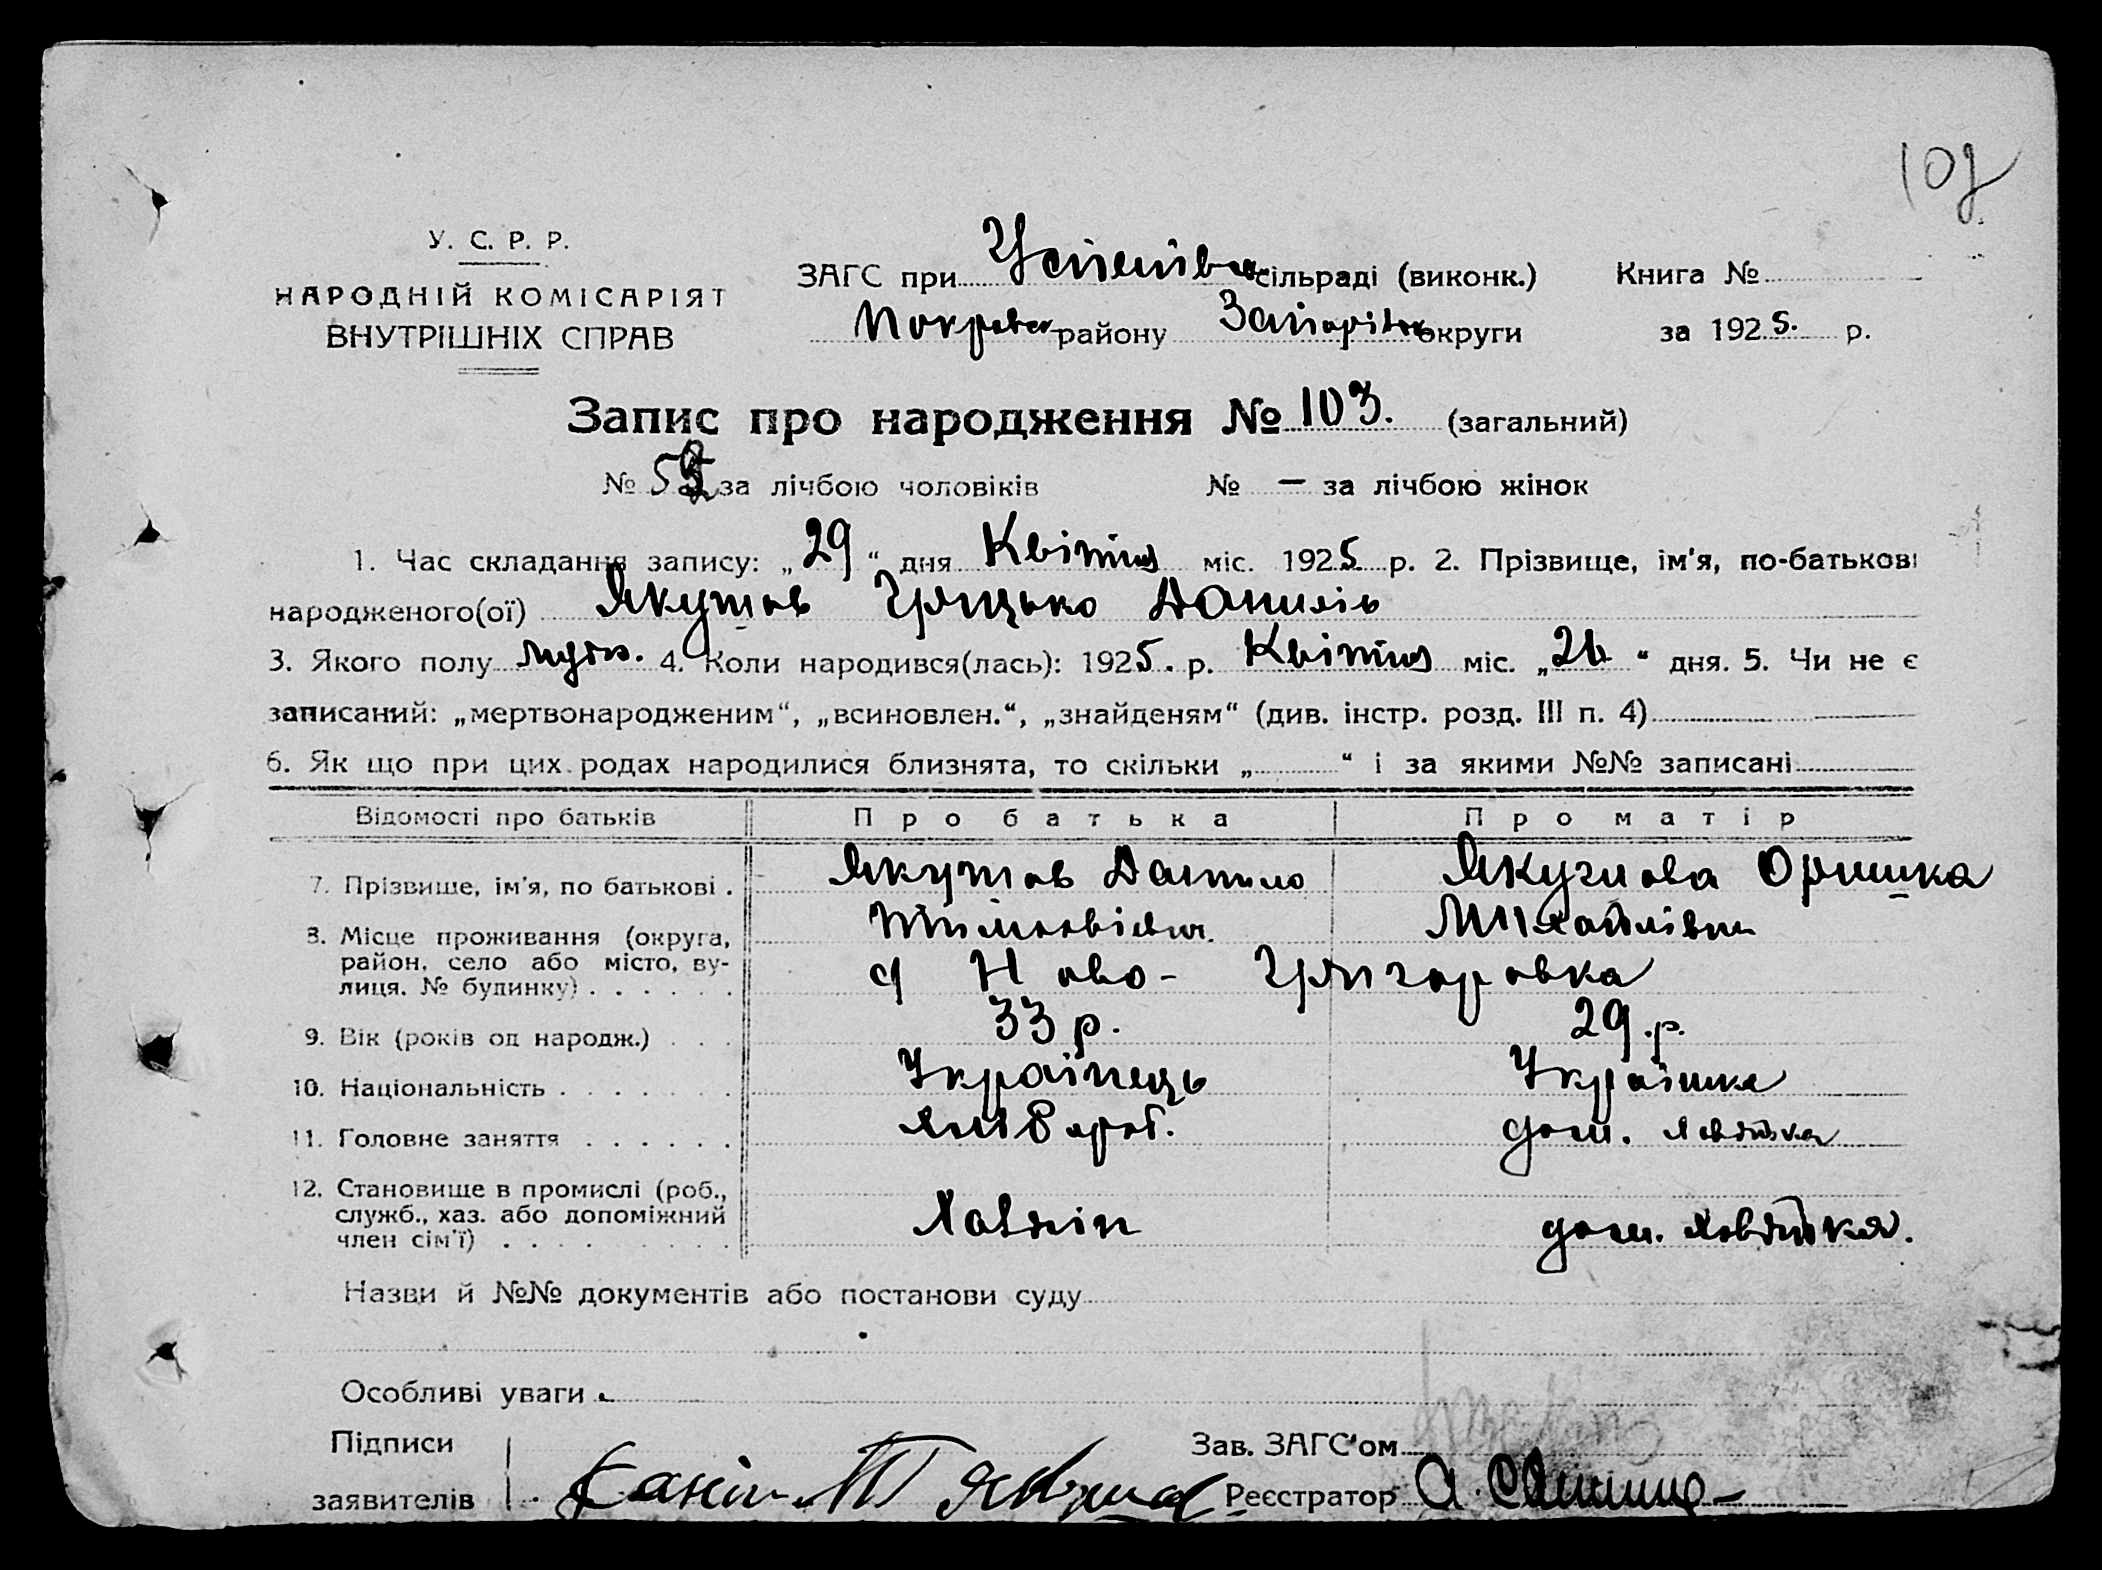 У. С. Р. Р.
НАРОДНІЙ КОМІСАРІЯТ
ВНУТРІШНІХ СПРАВ
ЗАГС при Успенівск сільраді (виконк.)
Покровск району Запоріжск округи
Книга №
за 1925. р.
Запис про народження № 103. (загальний)
№ 5 за лічбою чоловіків № — за лічбою жінок
1. Час складання запису: „29“ дня Квітня міс. 1925 р. 2. Прізвище, ім'я, по-батькові
народженого(ої) Якутов Грицько Данилів
3. Якого полу муж. 4. Коли народився(лась): 1925. р. Квітня міс. „26“ дня. 5. Чи не є
записаний: „мертвонародженим“, „всиновлен.“, „знайденям“ (див. інстр. розд. III п. 4)
6. Як що при цих родах народилися близнята, то скільки „ “ і за якими №№ записані
Відомості про батьків Про батька Про матір
7. Прізвище, ім'я, по батькові . Якутов Данило Якутова Оришка
Тимофієвич. Михайлівна
8. Місце проживання (округа, район, село або місто, вулиця, № будинку) . . . . . . с Ново- Григоровка
9. Вік (років од народж.) . . . 33 р. 29. р.
10. Національність . . . . . . . Українець Українка
11. Головне заняття . . . . . . хлібороб. дом. хозяйка
12. Становище в промислі (роб., служб., хаз. або допоміжний член сім'ї) . . . . . . . . Хозяїн дом. хозяйка.
Назви й №№ документів або постанови суду
Особливі уваги
Підписи
заявителів
Зав. ЗАГС'ом
Реєстратор